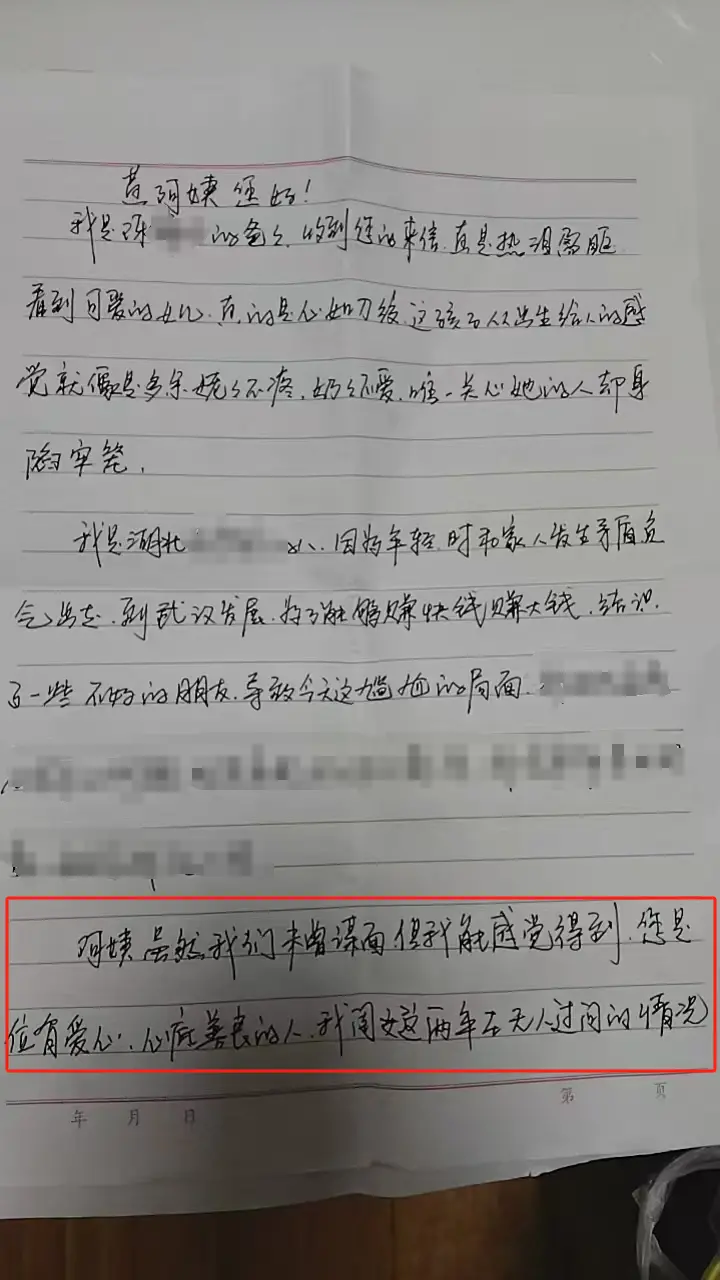 黄阿姨您好！
我是陈 的爸爸，收到您的来信，真是热泪盈眶
看到可爱的女儿，真的是心如刀绞，这孩子从出生给人的感
觉就像是多余，姥姥不疼，奶奶不爱，唯一关心她的人却身
陷牢笼，
我是湖北 人，因为年轻时和家人发生矛盾负
气出走，到武汉发展，为了能够赚快钱赚大钱，结识
了一些不好的朋友，导致今天这尴尬的局面，
阿姨虽然我们未曾谋面但我能感觉得到，您是
位有爱心，心底善良的人，我闺女这两年在无人过问的情况
第 页
年 月 日